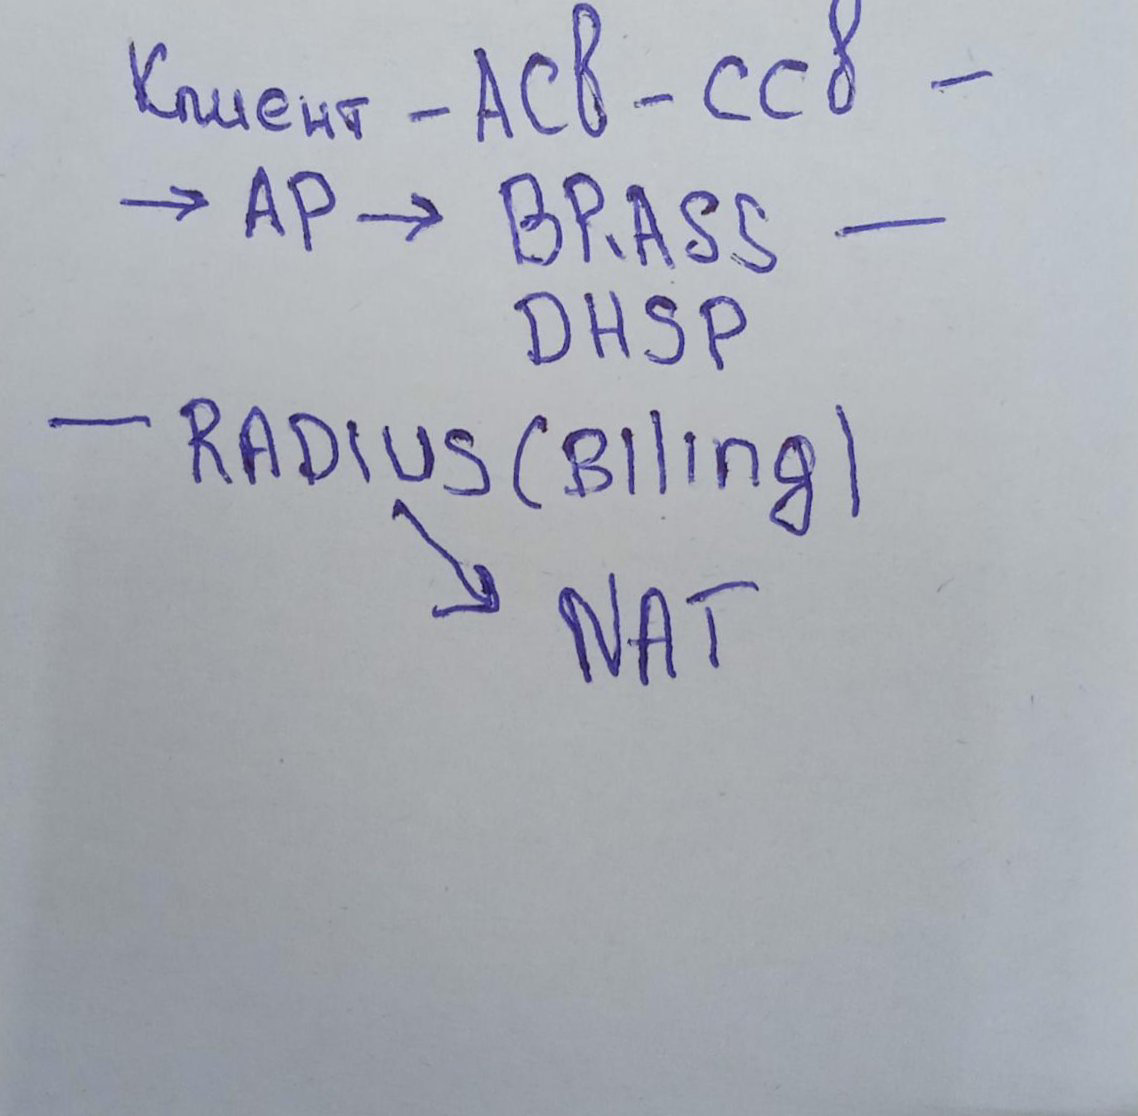 Клиент - ACB - CCB -
→ AP → BRASS —
DHSP
— RADIUS (Biling)
NAT